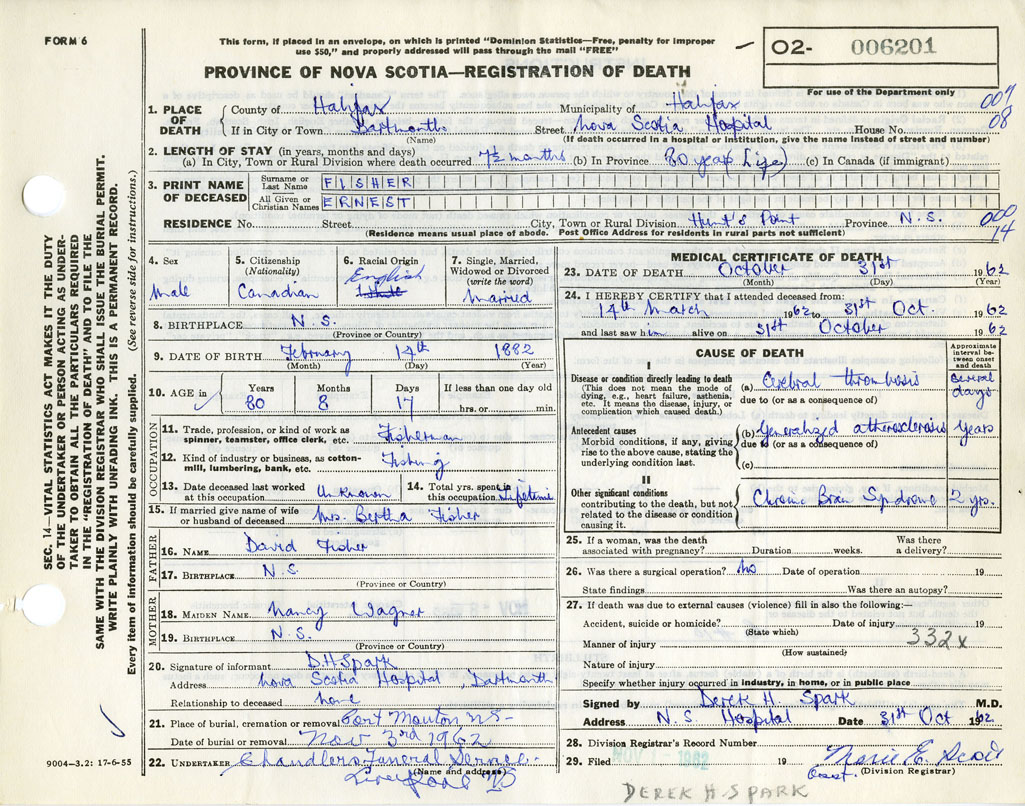 FORM 6
This form, if placed in an envelope, on which is printed "Dominion Statistics—Free, penalty for improper
use $50," and properly addressed will pass through the mail "FREE"
O2- 006201
PROVINCE OF NOVA SCOTIA—REGISTRATION OF DEATH
For use of the Department only
1. PLACE OF DEATH County of Halifax Municipality of Halifax 007
If in City or Town Dartmouth Street Nova Scotia Hospital House No. 08
(Name) (If death occurred in a hospital or institution, give the name instead of street and number)
2. LENGTH OF STAY (in years, months and days)
(a) In City, Town or Rural Division where death occurred 7½ months (b) In Province 80 years (Life) (c) In Canada (if immigrant)
3. PRINT NAME OF DECEASED Surname or Last Name FISHER
All Given or Christian Names ERNEST
RESIDENCE No. Street City, Town or Rural Division Hunt's Point Province N.S. 000
(Residence means usual place of abode. Post Office Address for residents in rural parts not sufficient) 14
4. Sex Male
5. Citizenship (Nationality) Canadian
6. Racial Origin English
7. Single, Married, Widowed or Divorced (write the word) Married
8. BIRTHPLACE N.S.
(Province or Country)
9. DATE OF BIRTH February 14th 1882
(Month) (Day) (Year)
10. AGE in Years 80 Months 8 Days 17 If less than one day old hrs. or min.
OCCUPATION
11. Trade, profession, or kind of work as spinner, teamster, office clerk, etc. Fisherman
12. Kind of industry or business, as cotton-mill, lumbering, bank, etc. Fishing
13. Date deceased last worked at this occupation Unknown
14. Total yrs. spent in this occupation Lifetime
15. If married give name of wife or husband of deceased Mrs. Bertha Fisher
FATHER
16. NAME David Fisher
17. BIRTHPLACE N.S.
(Province or Country)
MOTHER
18. MAIDEN NAME Nancy Wagner
19. BIRTHPLACE N.S.
(Province or Country)
20. Signature of informant D.H Spark
Address Nova Scotia Hospital, Dartmouth
Relationship to deceased none
21. Place of burial, cremation or removal Port Mouton N.S-
Date of burial or removal Nov 3rd 1962
22. UNDERTAKER Chandlers Funeral Service-
(Name and address) Liverpool NS
MEDICAL CERTIFICATE OF DEATH
23. DATE OF DEATH October 31st 1962
(Month) (Day) (Year)
24. I HEREBY CERTIFY that I attended deceased from:
14th March 1962 to 31st Oct. 1962
and last saw him alive on 31st October 1962
CAUSE OF DEATH
Approximate interval between onset and death
I
Disease or condition directly leading to death
(This does not mean the mode of
dying, e.g., heart failure, asthenia,
etc. It means the disease, injury, or
complication which caused death.)
(a) Cerebral thrombosis Several days
due to (or as a consequence of)
Antecedent causes
Morbid conditions, if any, giving
rise to the above cause, stating the
underlying condition last.
(b) Generalized atherosclerosis Years
due to (or as a consequence of)
(c)
II
Other significant conditions
contributing to the death, but not
related to the disease or condition
causing it.
Chronic Brain Syndrome 2 yrs.
25. If a woman, was the death associated with pregnancy? Duration weeks. Was there a delivery?
26. Was there a surgical operation? No Date of operation 19
State findings Was there an autopsy?
27. If death was due to external causes (violence) fill in also the following:—
Accident, suicide or homicide? Date of injury 19
(State which)
Manner of injury 332x
(How sustained)
Nature of injury
Specify whether injury occurred in industry, in home, or in public place
Signed by Derek H. Spark M.D.
Address N.S. Hospital Date 31st Oct 1962
28. Division Registrar's Record Number
29. Filed NOV 1962 19 Marie E. Scott
Asst. (Division Registrar)
DEREK H. SPARK
SEC. 14—VITAL STATISTICS ACT MAKES IT THE DUTY
OF THE UNDERTAKER OR PERSON ACTING AS UNDER-
TAKER TO OBTAIN ALL THE PARTICULARS REQUIRED
IN THE "REGISTRATION OF DEATH" AND TO FILE THE
SAME WITH THE DIVISION REGISTRAR WHO SHALL ISSUE THE BURIAL PERMIT.
WRITE PLAINLY WITH UNFADING INK. THIS IS A PERMANENT RECORD.
Every item of information should be carefully supplied. (See reverse side for instructions.)
9004—3.2: 17-6-55